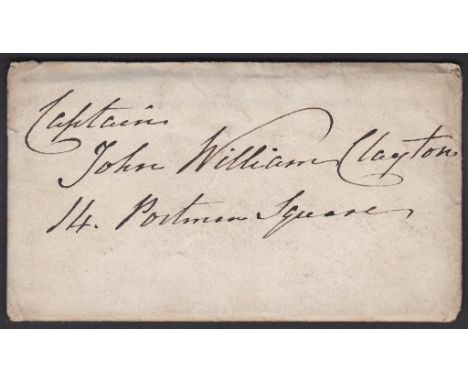 Captain
John William Clayton
14. Portman Square